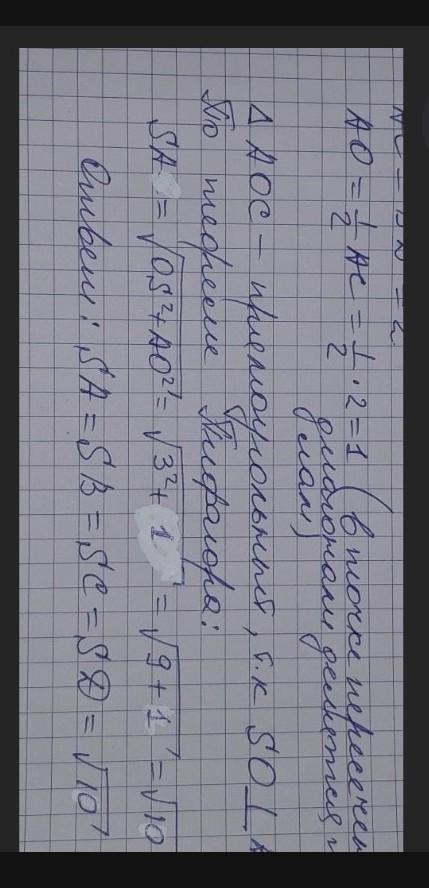 AO = 1/2 AC = 1/2 · 2 = 1 (в точке
диагонали делятся
Δ AOC – прямоугольный, т.к SO ⊥
По теореме Пифагора:
SA = √OS²+AO² = √3²+1 = √9+1 = √10
Ответ: SA = SB = SC = SD = √10